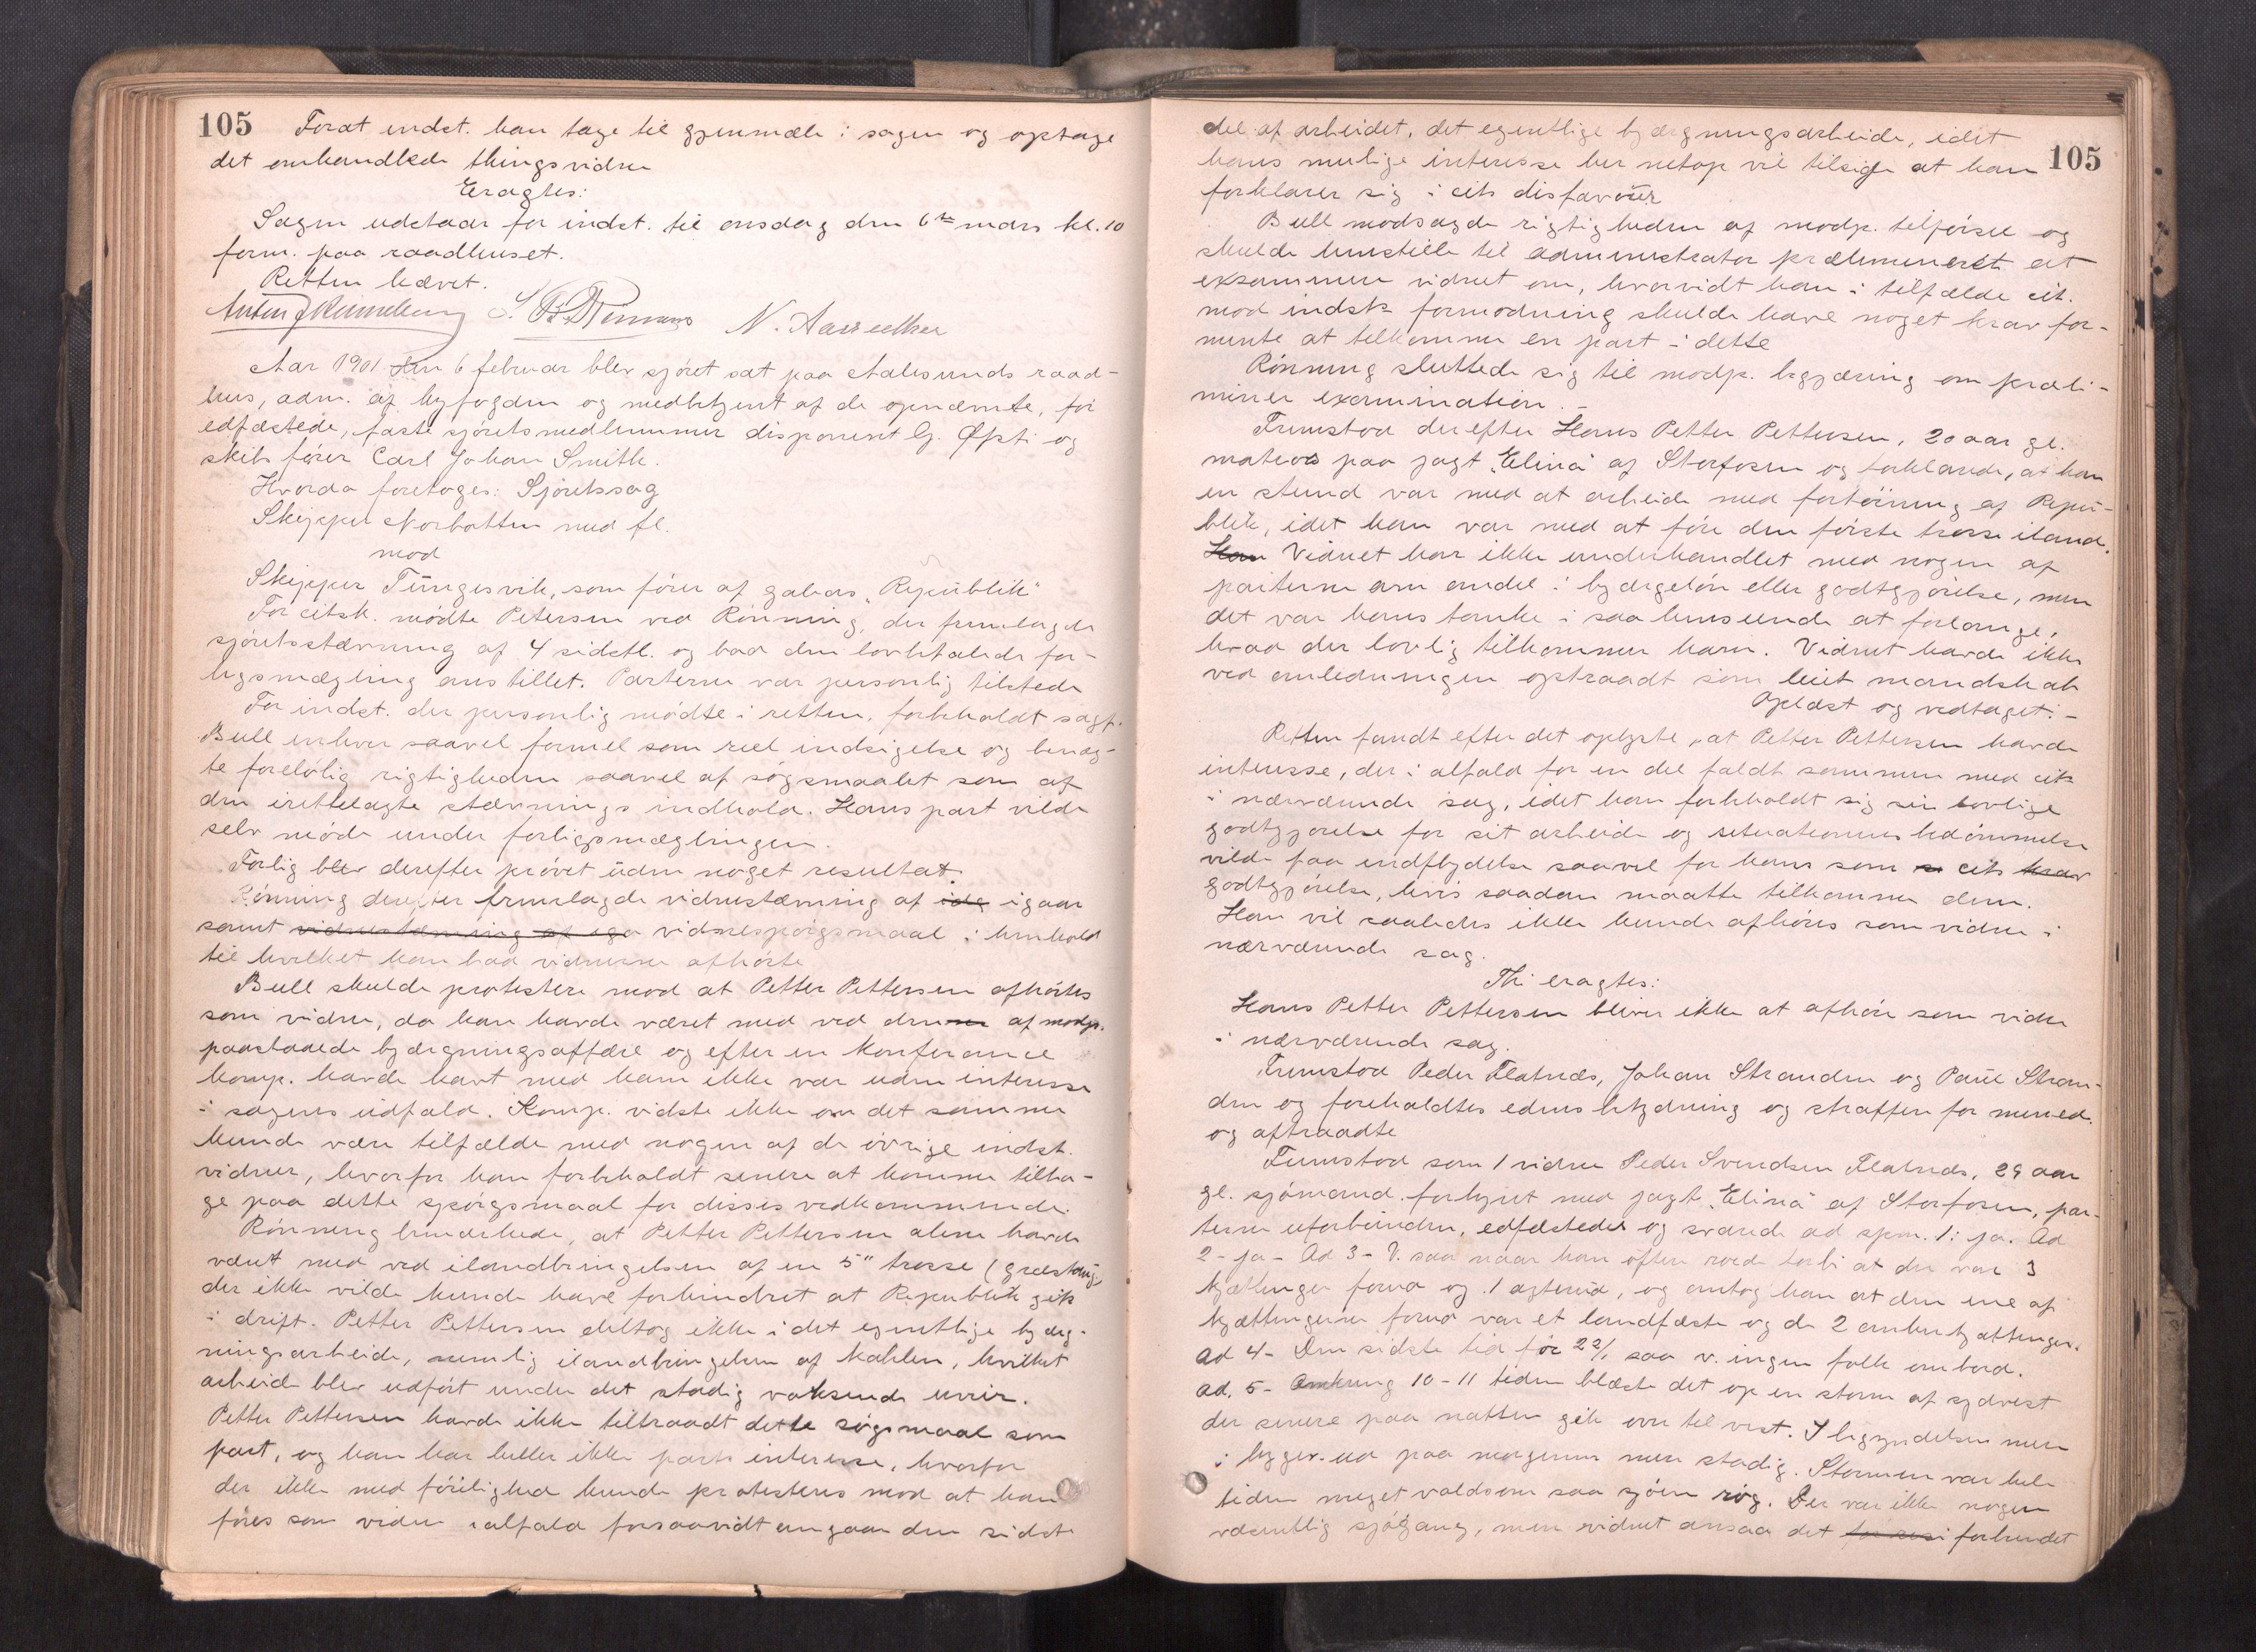 105 Forat indst. kan tage til gjenmæle i sagen og optage
det omhandlede thingsvidne
Eragtes:
Sagen udstaar for indst. til onsdag den 6te mars kl. 10
form. paa raadhuset.
Retten hævet.
N.
Aar 1901 den 6 februar blev sjöret sat paa Aalesunds raad-
hus, adm. af byfogden og medbetjent af de opnævnte, för
edfæstede, faste sjöretsmedlemmer disponent G. Öfsti og
skibsförer Carl Johan Smith.
Hvorda foretoges: Sjöretssag
Skipper Norbotten med fl.
mod
Skipper Tungesvik, som förer af galeas "Republik"
For citsk. mödte Petersen ved Rönning, der fremlagde
sjöretsstævning af 4 sidstl. og bad den lovbefalede for-
ligsmægling anstillet. Parterne var personlig tilstede
For indst. der personlig mödte i retten, forbeholdt sagf.
Bull enhver saavel formel som reel indsigelse og benæg-
te forelöbig rigtigheden saavel af sögsmaalet som af
den irettelagte stævnings indhold. Hans part vilde
selv möde under forligsmæglingen.
Forlig blev derefter prövet uden noget resultat.
Rönning derefter fremlagde vidnestævning af idag igaar
samt vidnestævning af iga vidnespörgsmaal i henhold
til hvilket han bad vidnerne afhörte
Bull skulde protestere mod at Petter Pettersen afhörtes
som vidne, da han havde været med ved denne af modp.
paastaaede bjærgningsaffære og efter en konferance
komp. havde havt med ham ikke var uden interesse
i sagens udfald. Komp. vidste ikke om det samme
kunde være tilfælde med nogen af de övrige indst.
vidner, hvorfor han forbeholdt senere at komme tilba-
ge paa dette spörgsmaal for disses vedkommende.
Rönning bemærkede, at Petter Pettersen alene havde
været med ved ilandbringelsen af en 5" trosse (græstoug)
der ikke vilde kunde have forhindret at Republik gik
i drift. Petter Pettersen deltog ikke i det egentlige bjærg-
ningsarbeide, nemlig ilandbringelsen af kablen, hvilket
arbeide blev udfört under det stadig voksende uveir.
Petter Pettersen havde ikke tiltraadt dette sögsmaal som
part, og han har heller ikke parts interesse, hvorfor
der ikke med föielighed kunde protesteres mod at han
föres som vidne ialfald forsaavidt angaar den sidste
105
del af arbeidet, det egentlige bjærgningsarbeide, idet
hans mulige interesse her netop vil tilsige at han
forklarer sig i cits disfavour
Bull modsagde rigtigheden af modp. tilförsel og
skulde henstille til administrator præliminert at
eksaminere vidnet om, hvorvidt han i tilfælde cit.
mod indstk formodning skulde have noget krav for-
mente at tilkomme en part i dette
Rönning sluttede sig til modp. begjæring om præli-
miner examination.-
Fremstod derefter Hans Petter Pettersen, 20 aar gl.
matros paa jagt "Elina" af Storfosen og forklarede, at han
en stund var med at arbeide med fortöining af Repu-
blik, idet han var med at före den förste trosse iland.
Han Vidnet har ikke underhandlet med nogen af
parterne om andel i bjærgelön eller godtgjörelse, men
det var hans tanke i saa henseende at forlange,
hvad der lovlig tilkommer ham. Vidnet havde ikke
ved anledningen optraadt som leiet mandskab
Oplæst og vedtaget.-
Retten fandt efter det oplyste, at Petter Pettersen havde
interesse, der i alfald for en del faldt sammen med cits
i nærværende sag, idet han forbeholdt sig sin lovlige
godtgjörelse for sit arbeide og situationens bedömmelse
vilde faa indflydelse saavel for hans som si cits krav
godtgjörelse, hvis saadan maatte tilkomme dem.
Han vil saaledes ikke kunde afhöres som vidne i
nærværende sag.
Thi eragtes:
Hans Petter Pettersen bliver ikke at afhöre som vidne
i nærværende sag.
Fremstod Peder Flatnæs, Johan Stranden og Paul Stran-
den og foreholdtes edens betydning og straffen for mened.
og aftraadte
Fremstod som 1 vidne Peder Svendsen Flatnæs, 29 aar
gl. sjömand, forhyret med jagt "Elina" af Storfosen, par-
terne uforbunden, edfæstedes og svarede ad spm. 1: ja. Ad
2- ja- Ad 3- V. saa naar han ofte roede forbi at der var 3
kjættinger forud og 1 agterud, og antog han at den ene af
kjættingerne forud var et landfæste og de 2 ankerkjættinger.
Ad 4- Den sidste tid för 22/1 saa v. ingen folk ombord.
Ad. 5- Omkring 10-11 tiden blæste det op en storm af sydvest
der senere paa natten gik over til vest. I begyndelsen mere
i bygger ud paa morgenen mere stadig. Stormen var hele
tiden meget voldsom saa sjöen rög. Der var ikke nogen
væsentlig sjögang, men vidnet ansaa det forbundet